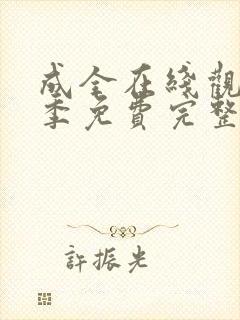 成全在綫觀
季免費完整
許振光